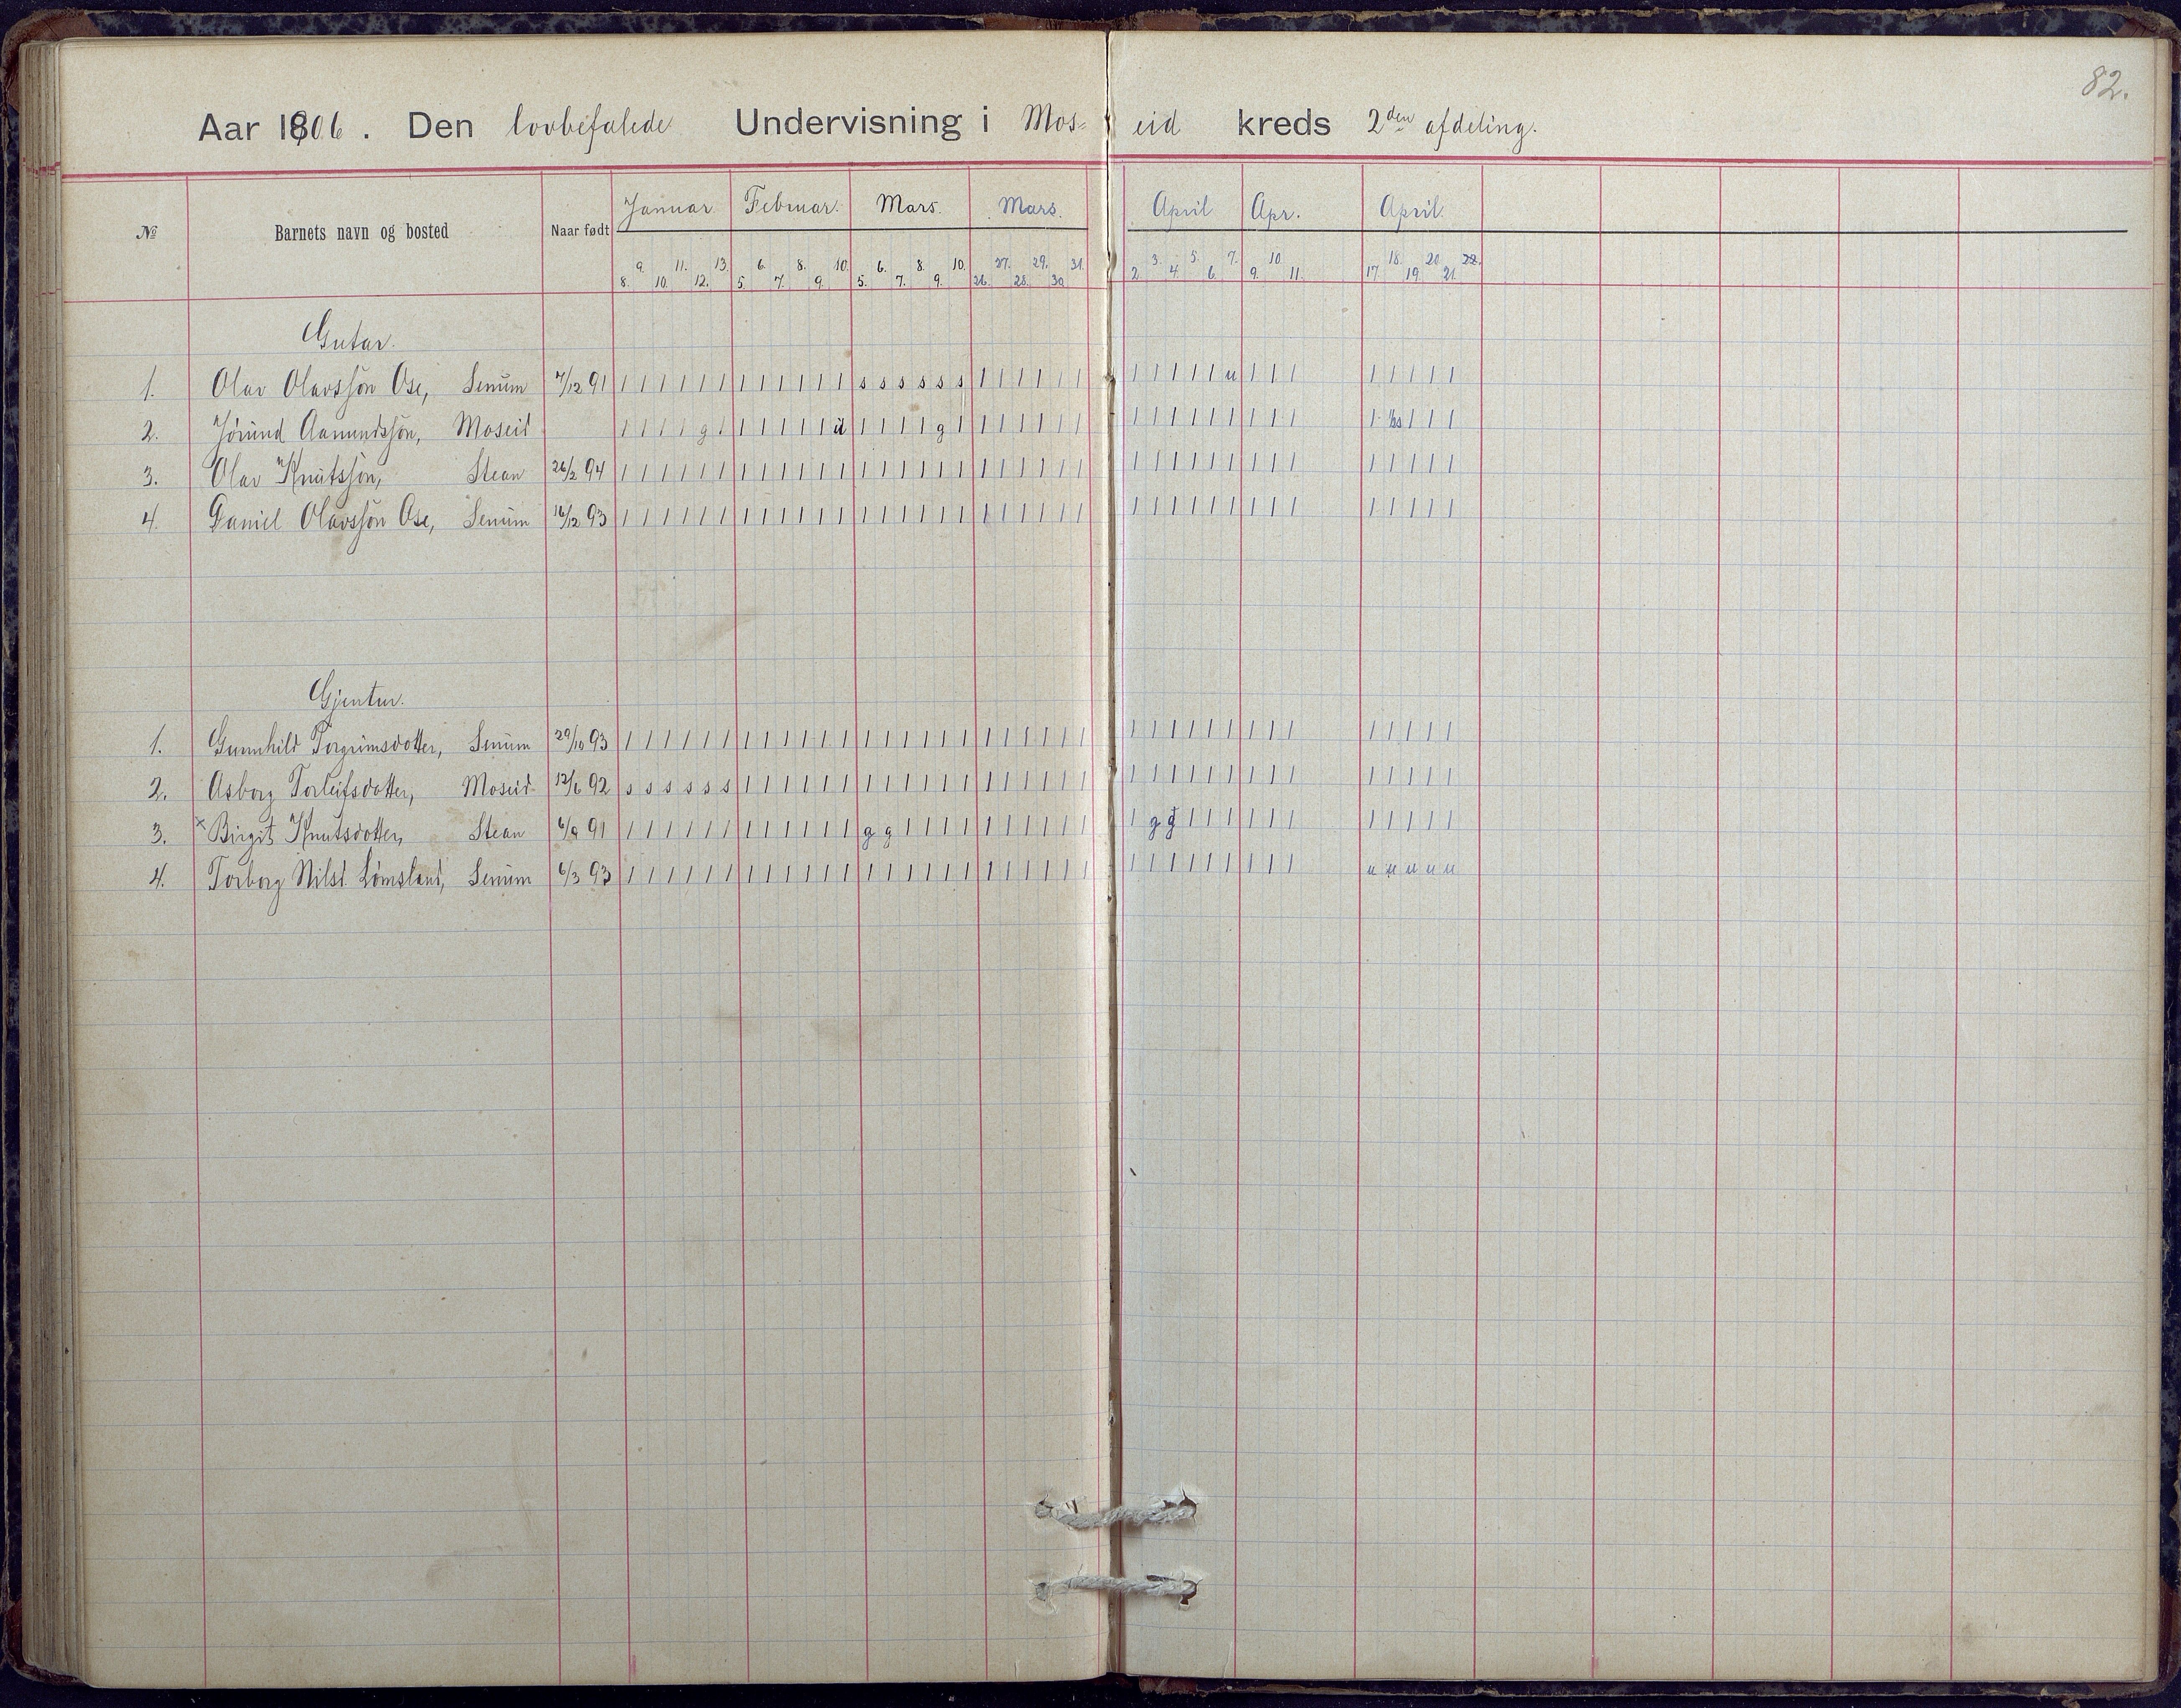 82.
Aar 1906. Den lovbefalede Undervisning i Mos= eid kreds 2den afdeling.
№ Barnets navn og bosted Naar født Januar. Februar. Mars. Mars. April Apr. April.
8. 9. 10. 11. 12. 13. 5. 6. 7. 8. 9. 10. 5. 6. 7. 8. 9. 10. 26. 27. 28. 29. 30. 31. 2. 3. 4. 5. 6. 7. 9. 10. 11. 17. 18. 19. 20. 21. 22.
Gutar.
1. Olav Olavssøn Ose, Senum 7/12 91 | | | | | | | | | | | | s s s s s s | | | | | | | | | | | u | | | | | | | |
2. Jørund Aamundssøn, Moseid | | | | g | | | | | | u | | | | g | | | | | | | | | | | | | | | | | | | |
3. Olav Knutssøn, Stean 26/2 94 | | | | | | | | | | | | | | | | | | | | | | | | | | | | | | | | | | | | | |
4. Daniel Olavssøn Ose, Senum 16/12 93 | | | | | | | | | | | | | | | | | | | | | | | | | | | | | | | | | | | | | |
Gjentur.
1. Gunnhild Torgrimsdotter, Senum 29/10 93 | | | | | | | | | | | | | | | | | | | | | | | | | | | | | | | | | | | | | |
2. Asborg Torleifsdotter, Moseid 12/6 92 s s s s s s | | | | | | | | | | | | | | | | | | | | | | | | | | | | | | | |
3. × Birgit Knutsdotter, Stean 6/9 91 | | | | | | | | | | | | g g | | | | | | | | | | | g g | | | | | | | | | | |
4. Torborg Nilsd. Lømsland, Senum 6/3 93 | | | | | | | | | | | | | | | | | | | | | | | | | | | | | | | | | u u u u u